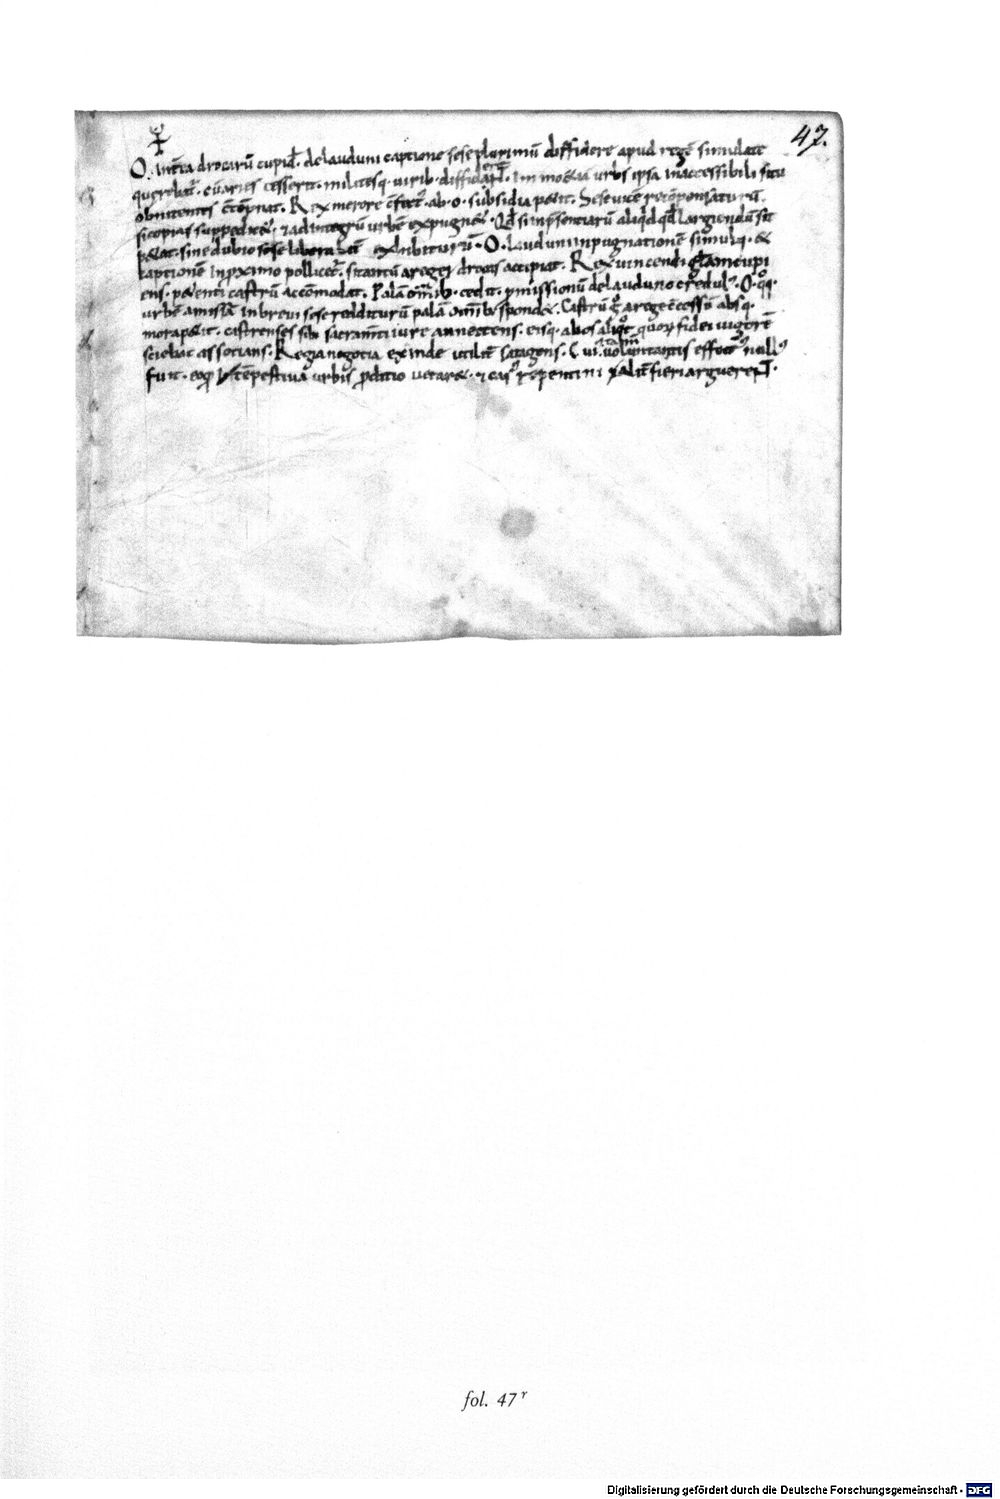 47.
O. Intēa drocarū cupid̄. delauduni captione sese plurimū diffidere apud regē simulate
querebat̄. cur aries cesserit. militesq. urib. diffiderent. Immo & ia urbs ipsa inaccessibili situ
obnitentes cōtēpnat. Rex merore cfect̄. ab. o. subsidia p&it. Sese uicē repōponsaturū
si copias suppedit&. & ad integrū urbē expugn&. Qd si inpsentiarū aliqd qd largiendū sit
p&at. sine dubio sese liberalit̄ exhibiturū. O. lauduni inpugnationē simulq. &
captionē inpximo pollicet̄. si tantū arege drocas accipiat. Rex uincendi cupi
ens. p&enti castrū accōmodat. Palā om̄ib. cedit. pmissionū de lauduno credul. O. qq.
urbē amissā in breui sese redditurū palā om̄ib spond&. Castrū g arege cessū absq.
mora p&it. castrenses sibi sacram̄ti iure annectens. eisq. alios aliqt quor fidei uigorē
sciebat associans. Regia negotia exinde utilit̄ satagens. Cui voluntatis effect null
fuit. eo qd tēpestiua urbis pditio u&ar&. & cas repentini aliter fieri arguerent.
fol. 47ʳ
Digitalisierung gefördert durch die Deutsche Forschungsgemeinschaft - DFG